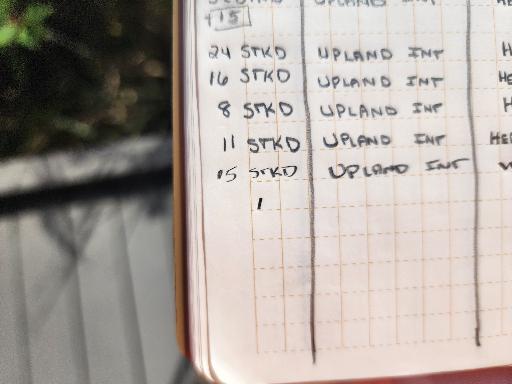 UPLAND INT
+15
24 STKD UPLAND INT H
16 STKD UPLAND INT HE
8 STKD UPLAND INT H
11 STKD UPLAND INT HE
15 STKD UPLAND INT
1